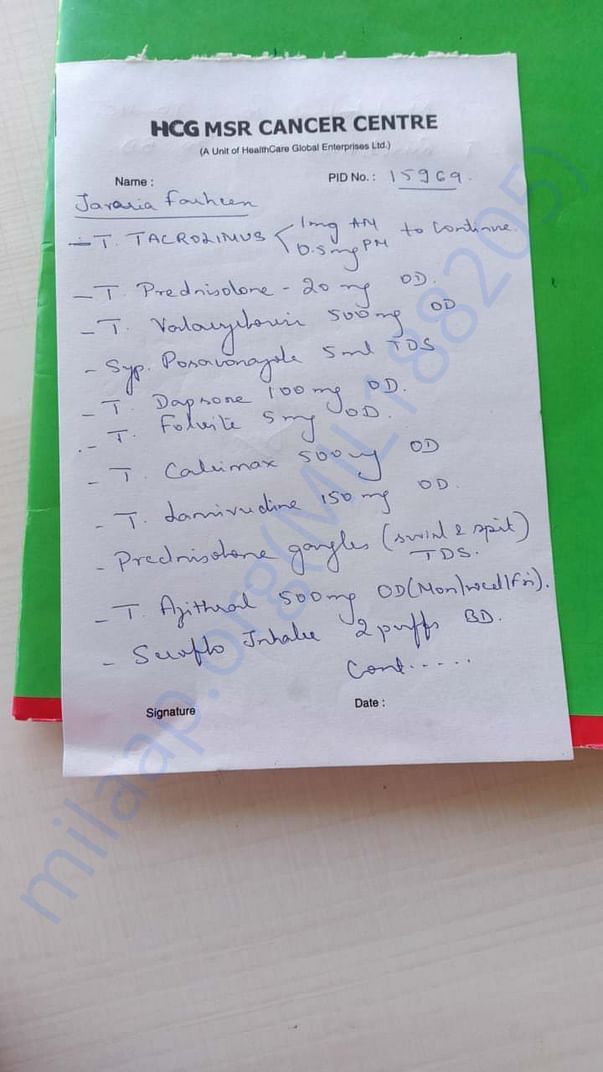 HCG MSR CANCER CENTRE
(A Unit of HealthCare Global Enterprises Ltd.)
Name :
PID No. : 15969.
Javaria Farheen
- T. TACROLIMUS < 1mg AM to continue.
0.5mg PM
- T. Prednisolone - 20 mg OD.
- T. Valacyclovir 500mg OD
- Syp. Posaconazole 5ml TDS
- T. Dapsone 100mg OD.
- T. Folvite 5mg OD.
- T. Calcimax 500mg OD
- T. Lamivudine 150mg OD.
- Prednisolone gargles (swirl & spit)
TDS.
- T. Azithral 500mg OD (Mon/wed/Fri).
- Seroflo Inhaler 2 puffs BD.
Cont.....
Signature
Date :
milaap.org(MIL188205)